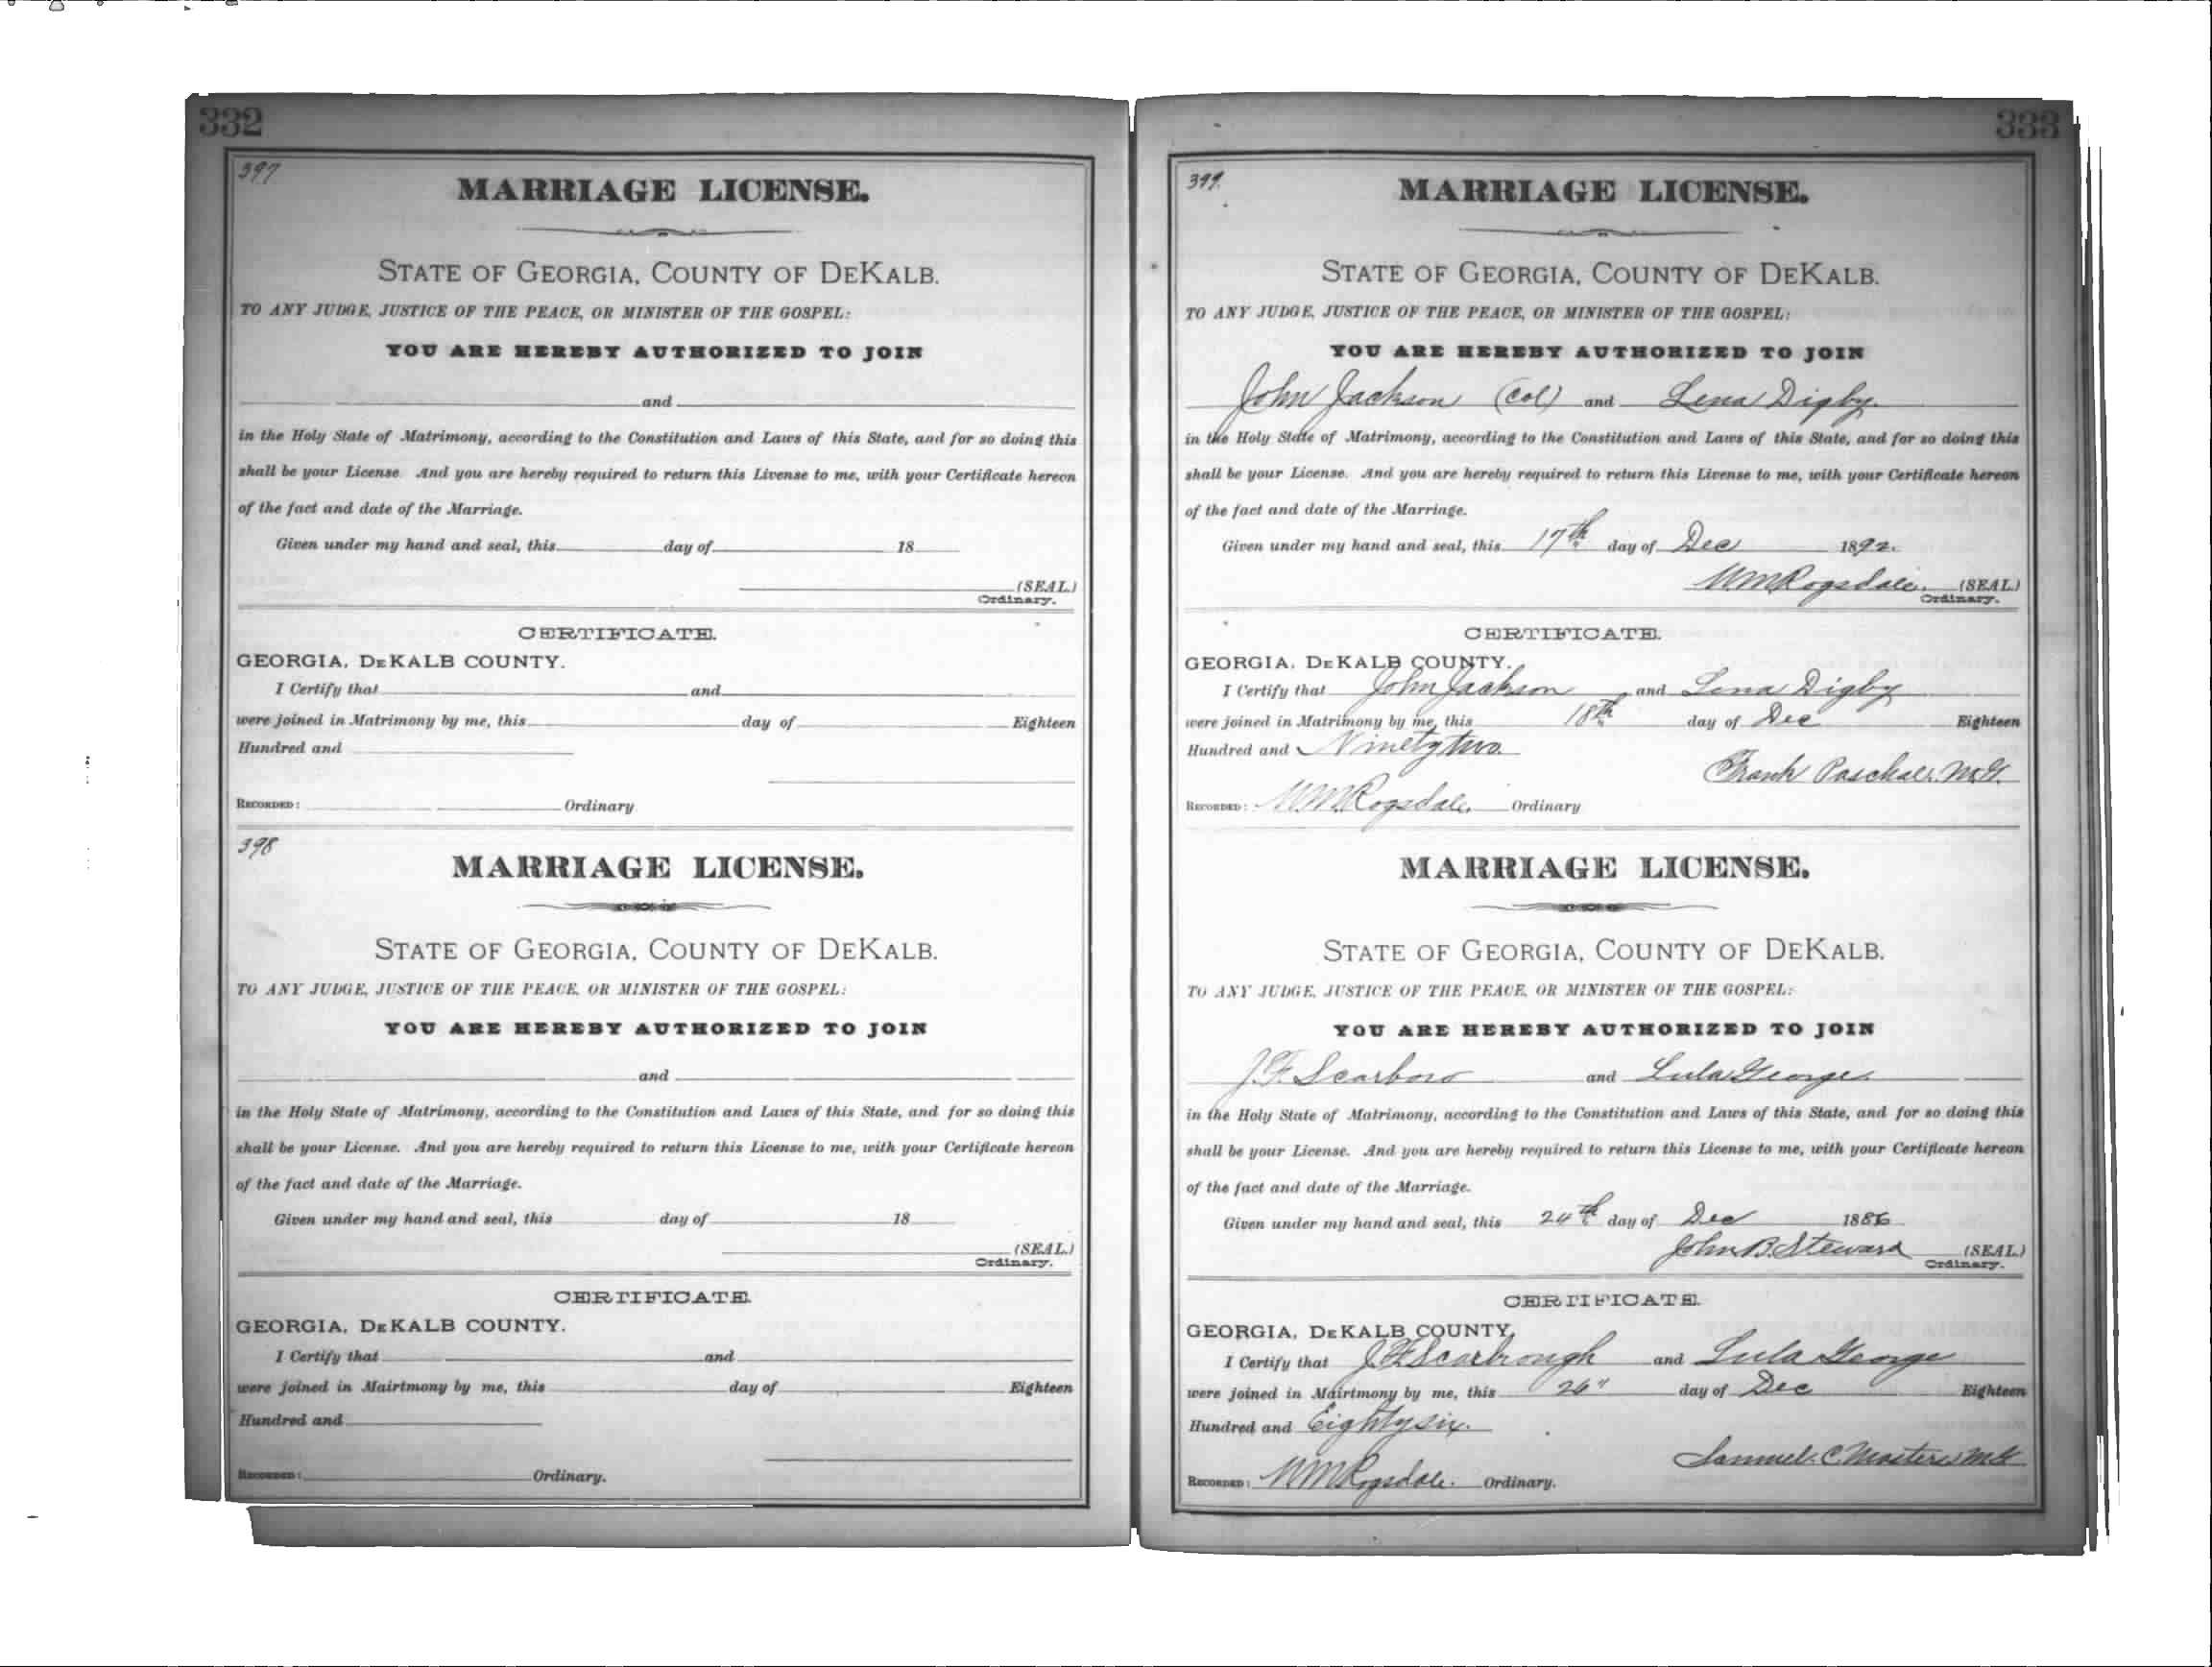 332
397
MARRIAGE LICENSE.
STATE OF GEORGIA, COUNTY OF DEKALB.
TO ANY JUDGE, JUSTICE OF THE PEACE, OR MINISTER OF THE GOSPEL:
YOU ARE HEREBY AUTHORIZED TO JOIN
and
in the Holy State of Matrimony, according to the Constitution and Laws of this State, and for so doing this
shall be your License. And you are hereby required to return this License to me, with your Certificate hereon
of the fact and date of the Marriage.
Given under my hand and seal, this day of 18
(SEAL.)
Ordinary.
CERTIFICATE.
GEORGIA, DEKALB COUNTY.
I Certify that and
were joined in Matrimony by me, this day of Eighteen
Hundred and
RECORDED: Ordinary
398
MARRIAGE LICENSE.
STATE OF GEORGIA, COUNTY OF DEKALB.
TO ANY JUDGE, JUSTICE OF THE PEACE, OR MINISTER OF THE GOSPEL:
YOU ARE HEREBY AUTHORIZED TO JOIN
and
in the Holy State of Matrimony, according to the Constitution and Laws of this State, and for so doing this
shall be your License. And you are hereby required to return this License to me, with your Certificate hereon
of the fact and date of the Marriage.
Given under my hand and seal, this day of 18
(SEAL.)
Ordinary.
CERTIFICATE.
GEORGIA, DEKALB COUNTY.
I Certify that and
were joined in Mairtmony by me, this day of Eighteen
Hundred and
RECORDED: Ordinary.
333
399.
MARRIAGE LICENSE.
STATE OF GEORGIA, COUNTY OF DEKALB.
TO ANY JUDGE, JUSTICE OF THE PEACE, OR MINISTER OF THE GOSPEL:
YOU ARE HEREBY AUTHORIZED TO JOIN
John Jackson (Col) and Lena Digby.
in the Holy State of Matrimony, according to the Constitution and Laws of this State, and for so doing this
shall be your License. And you are hereby required to return this License to me, with your Certificate hereon
of the fact and date of the Marriage.
Given under my hand and seal, this 17th day of Dec 1892.
W.M.Ragsdale. (SEAL.)
Ordinary.
CERTIFICATE.
GEORGIA, DEKALB COUNTY.
I Certify that John Jackson and Lena Digby
were joined in Matrimony by me, this 18th day of Dec Eighteen
Hundred and Ninety two
Frank Paschal. M.G.
RECORDED: W.M.Ragsdale. Ordinary
MARRIAGE LICENSE.
STATE OF GEORGIA, COUNTY OF DEKALB.
TO ANY JUDGE, JUSTICE OF THE PEACE, OR MINISTER OF THE GOSPEL:
YOU ARE HEREBY AUTHORIZED TO JOIN
J.F. Scarboro and Lula George
in the Holy State of Matrimony, according to the Constitution and Laws of this State, and for so doing this
shall be your License. And you are hereby required to return this License to me, with your Certificate hereon
of the fact and date of the Marriage.
Given under my hand and seal, this 24th day of Dec 1886
John B. Steward (SEAL.)
Ordinary.
CERTIFICATE.
GEORGIA, DEKALB COUNTY.
I Certify that J.F. Scarbrough and Lula George
were joined in Mairtmony by me, this 26" day of Dec Eighteen
Hundred and Eighty six.
Samuel. C. Masters M.G
RECORDED: W.M.Ragsdale. Ordinary.